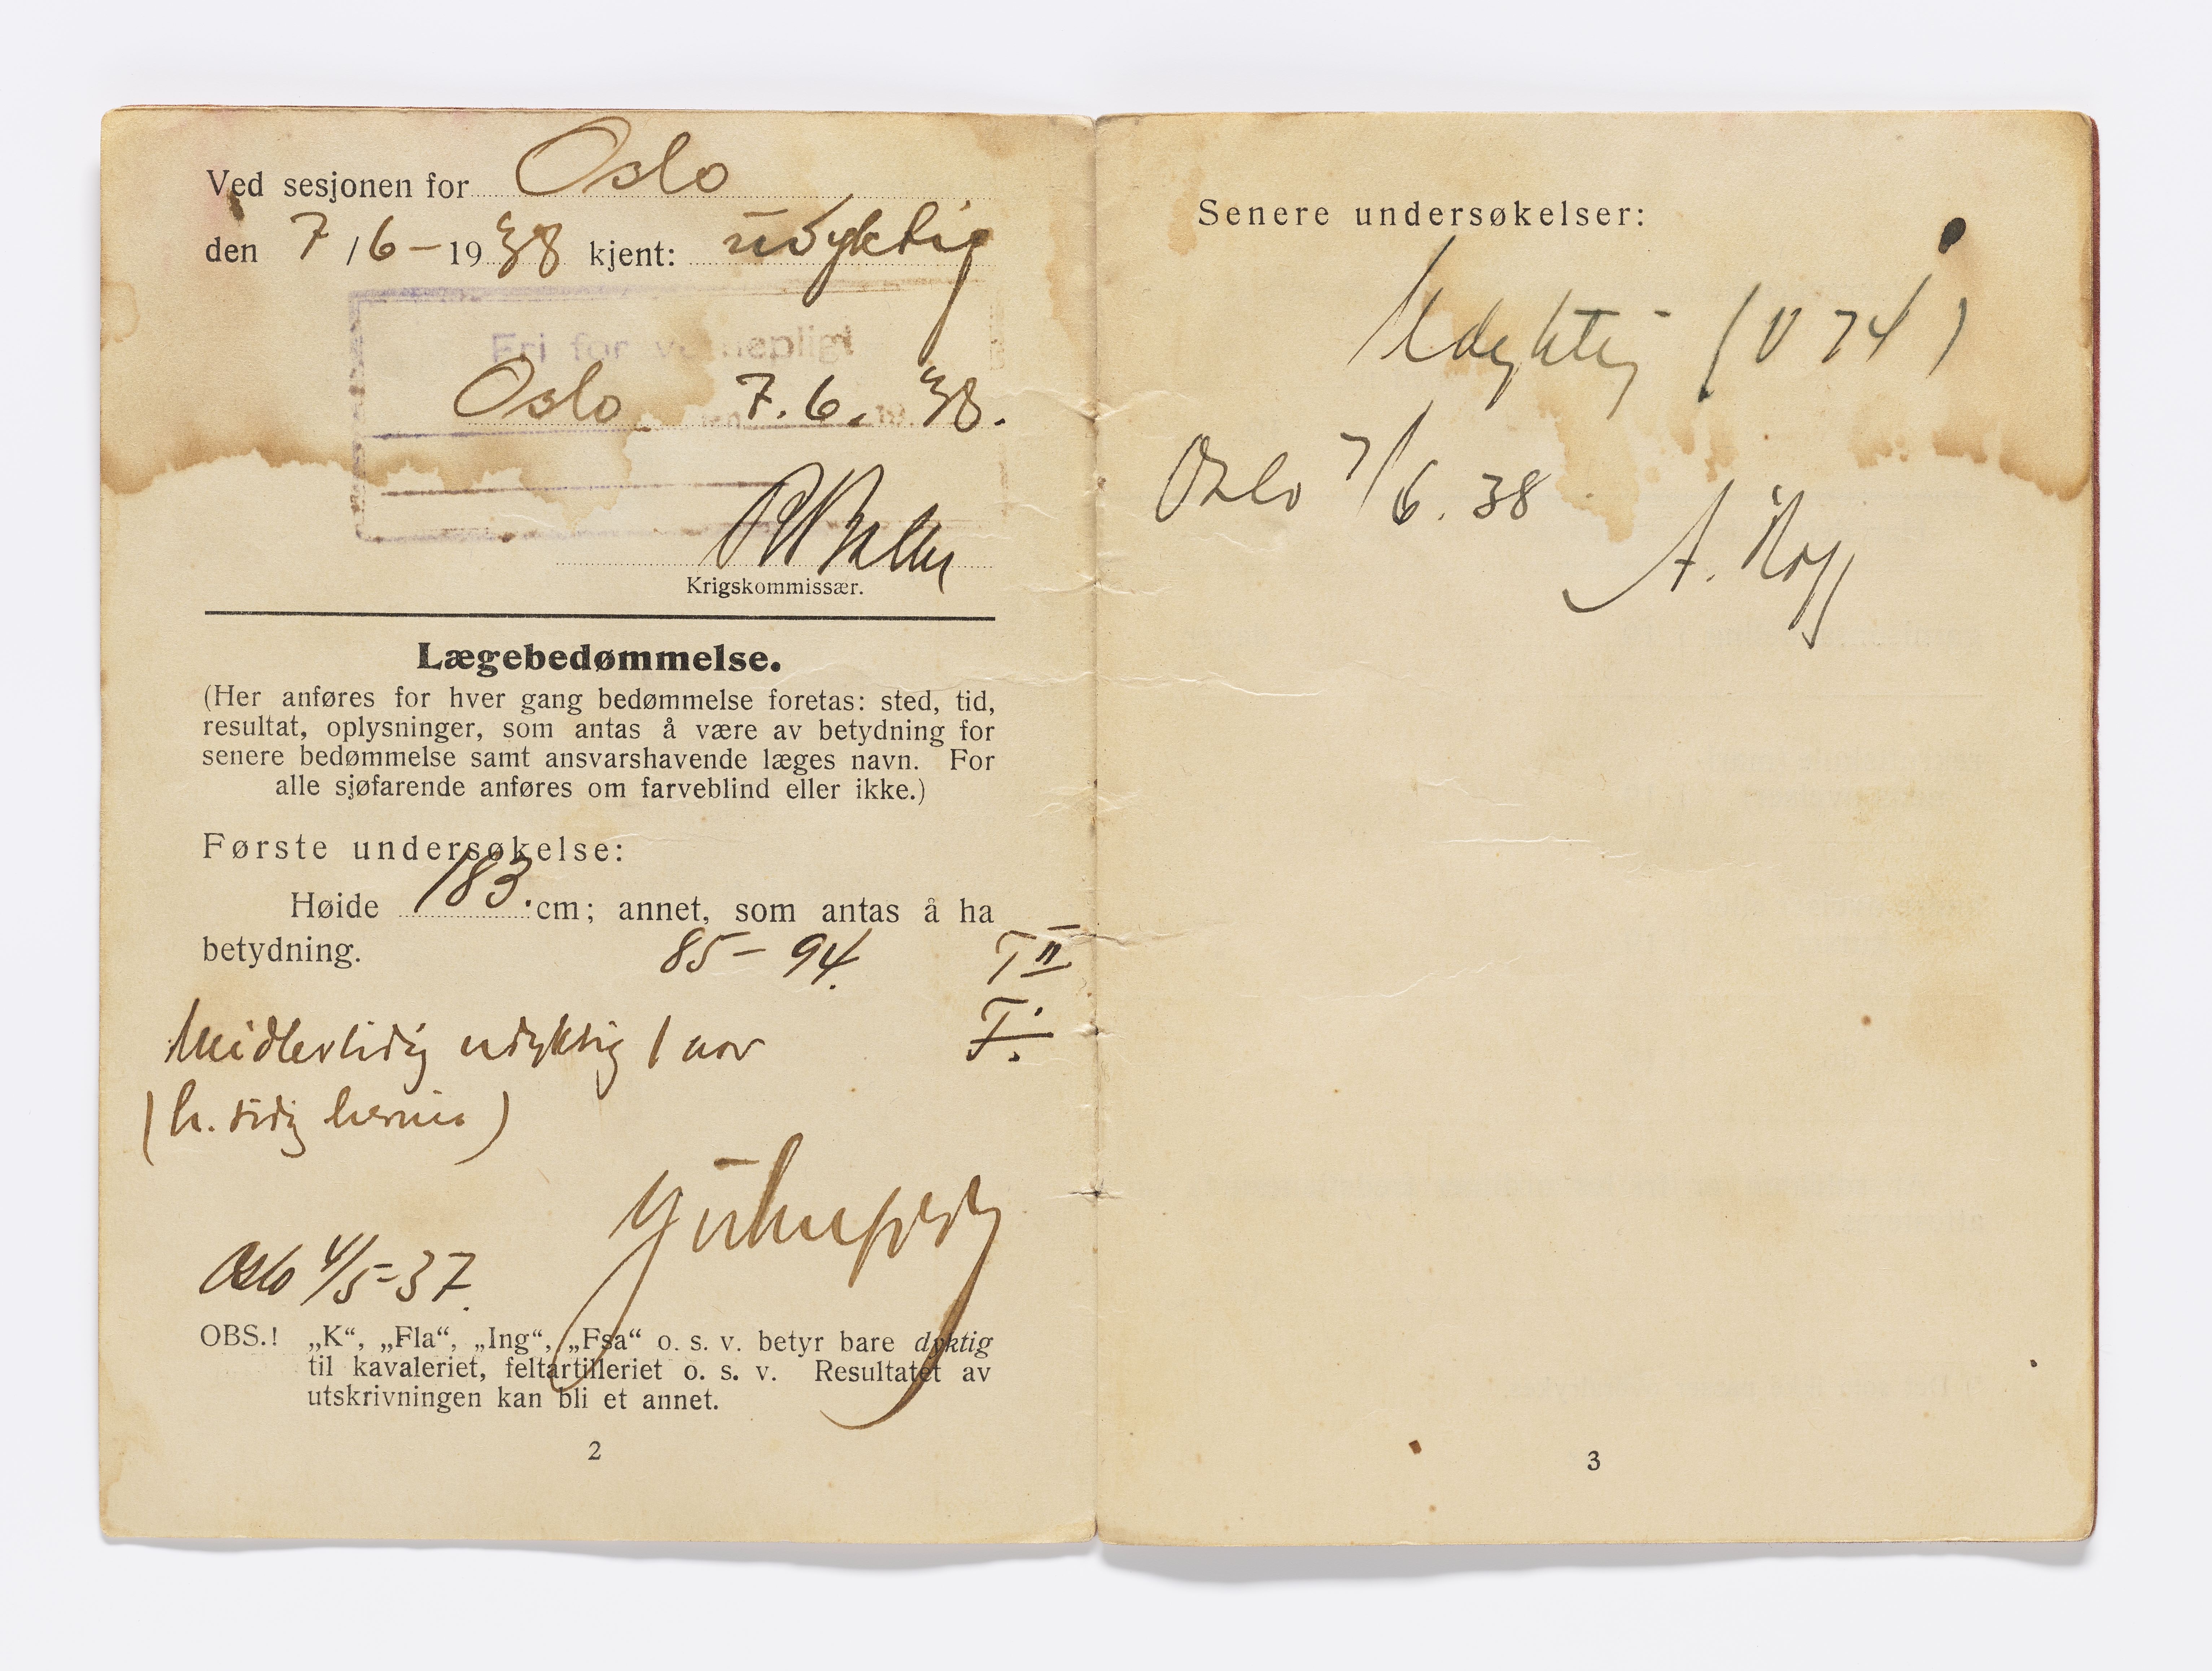 Ved sesjonen for Oslo
den 7/6-1938 kjent: udyktig
Fri for vernepligt
Oslo 7.6.38.
Krigskommissær.
Lægebedømmelse.
(Her anføres for hver gang bedømmelse foretas: sted, tid,
resultat, oplysninger, som antas å være av betydning for
senere bedømmelse samt ansvarshavende læges navn. For
alle sjøfarende anføres om farveblind eller ikke.)
Første undersøkelse:
Høide 183. cm; annet, som antas å ha
betydning. 85-94. T II
F.
Midlertidig udyktig 1 aar
(h. sidig hernie)
Oslo 4/5-37.
OBS.! „K“, „Fla“, „Ing“, „Fsa“ o. s. v. betyr bare dyktig
til kavaleriet, feltartilleriet o. s. v. Resultatet av
utskrivningen kan bli et annet.
2
Senere undersøkelser:
Udyktig (V 74)
Oslo 7/6.38
A.
3